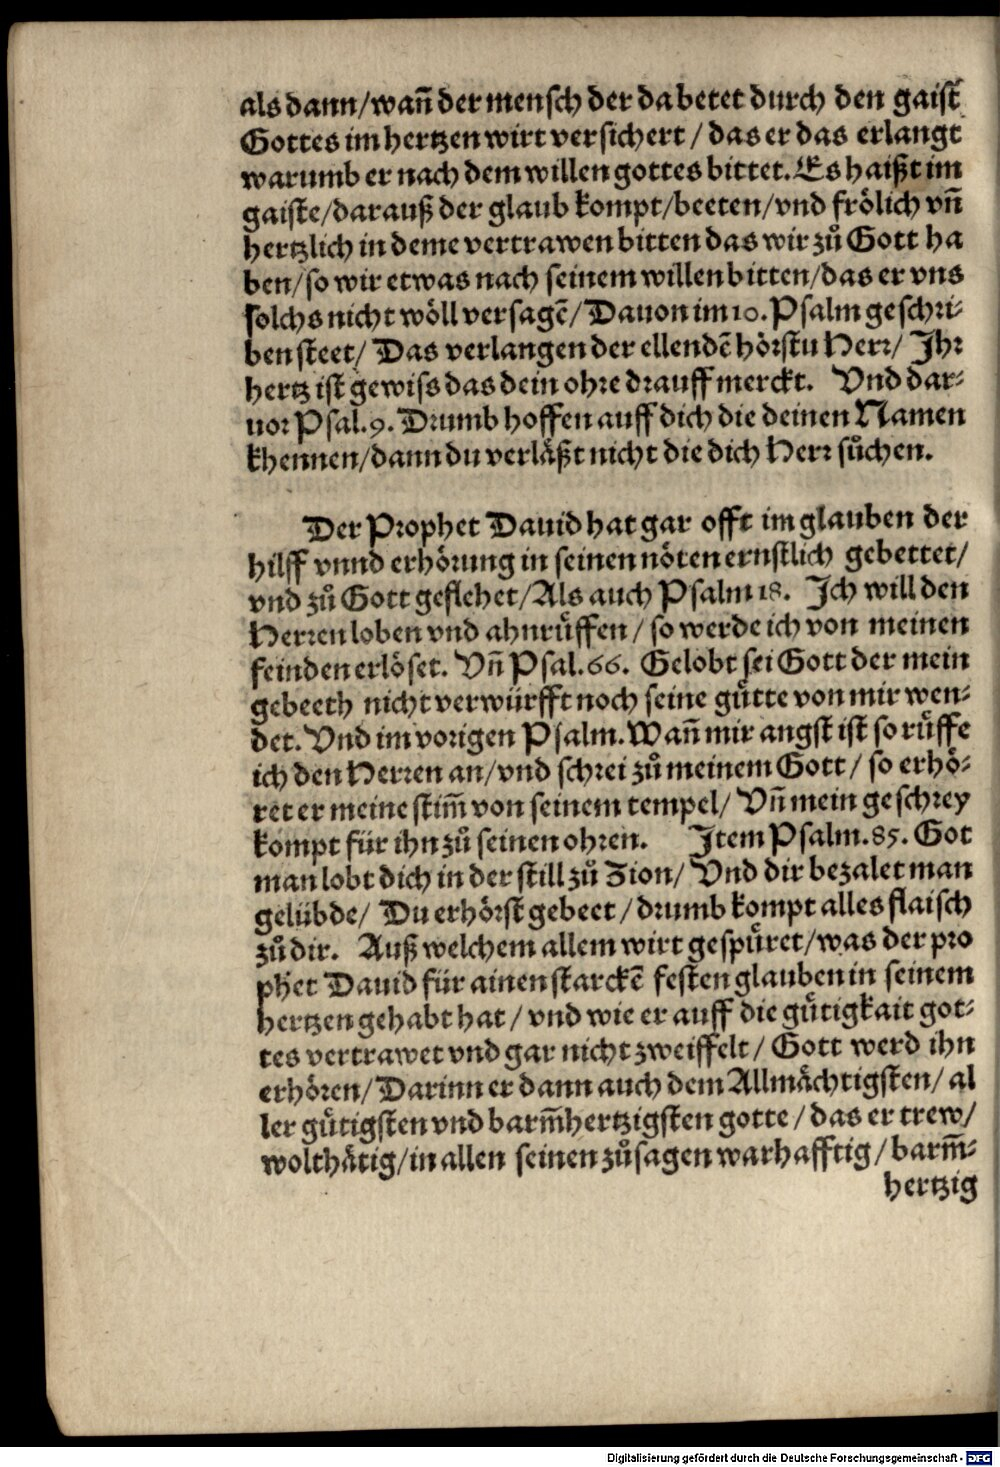 als dann/wañ der mensch der da betet durch den gaist
Gottes im hertzen wirt versichert / das er das erlangt
warumb er nach dem willen gottes bittet. Es haißt im
gaiste/darauß der glaub kompt/beeten/vnd frölich vñ
hertzlich in deme vertrawen bitten das wir zů Gott ha
ben/so wir etwas nach seinem willen bitten/das er vns
solchs nicht wöll versagẽ/ Dauon im 10. Psalm geschri-
ben steet/ Das verlangen der ellendẽ hörstu Herr/ Jhr
hertz ist gewiss das dein ohre drauff merckt. Vnd dar-
uor Psal.9. Drumb hoffen auff dich die deinen Namen
khennen/dann du verläßt nicht die dich Herr sůchen.
Der Prophet Dauid hat gar offt im glauben der
hilff vnnd erhörung in seinen nöten ernstlich gebettet/
vnd zů Gott geflehet/Als auch Psalm 18. Jch will den
Herren loben vnd ahnrůffen / so werde ich von meinen
feinden erlöset. Vñ Psal.66. Gelobt sei Gott der mein
gebeeth nicht verwürfft noch seine gůtte von mir wen-
det. Vnd im vorigen Psalm. Wañ mir angst ist so růffe
ich den Herren an/vnd schrei zů meinem Gott/ so erhö-
ret er meine stim̃ von seinem tempel/ Vñ mein geschrey
kompt für ihn zů seinen ohren. Jtem Psalm.85. Got
man lobt dich in der still zů Zion/ Vnd dir bezalet man
gelübde/ Du erhörst gebeet / drumb kompt alles flaisch
zů dir. Auß welchem allem wirt gespüret/was der pro
phet Dauid für ainen starckẽ festen glauben in seinem
hertzen gehabt hat / vnd wie er auff die gůtigkait got-
tes vertrawet vnd gar nicht zweiffelt/ Gott werd ihn
erhören/ Darinn er dann auch dem Allmächtigsten/ al
ler gůtigsten vnd barm̃hertzigsten gotte / das er trew/
wolthätig/in allen seinen zůsagen warhafftig / barm̃-
hertzig
Digitalisierung gefördert durch die Deutsche Forschungsgemeinschaft - DFG